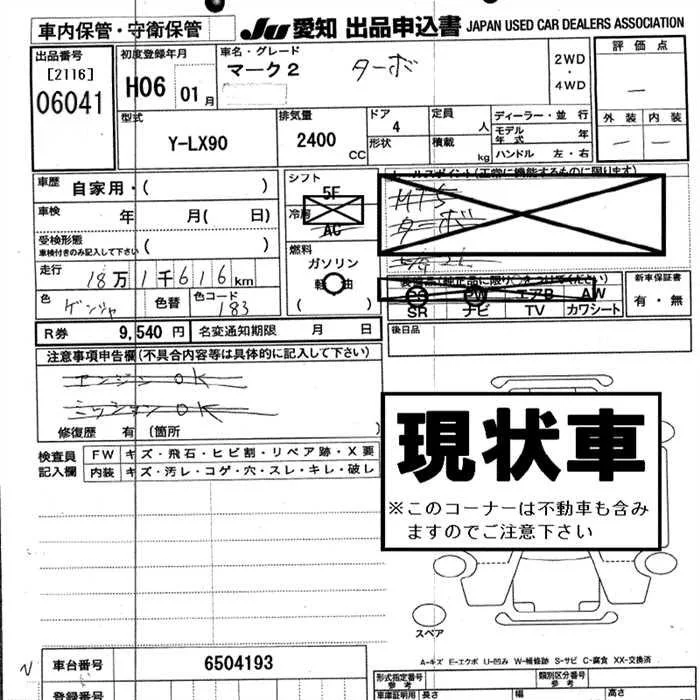 車内保管・守衛保管
JU 愛知 出品申込書 JAPAN USED CAR DEALERS ASSOCIATION
出品番号
[2116]
06041
初度登録年月
H06 01月
車名・グレード
マーク2 ターボ
2WD
・
4WD
評価点
—
外装 内装
— —
型式
Y-LX90
排気量
2400 CC
ドア
4
形状
定員
人
積載
kg
ディーラー・並行
モデル年式 年
ハンドル 左・右
車歴 自家用・( )
車検 年 月( 日)
受検形態
車検付きのみ記入して下さい ( )
走行 18万1千616km
色 ゲンジャ 色替 色コード 183
シフト
5F
冷房
AC
燃料
ガソリン
軽油
( )
セールスポイント(正常に機能するものに限ります)
MT5
ターボ
装備品(純正品に限り○をつけてください)
エアB AW
SR ナビ TV カワシート
新車保証書
有・無
R券 9,540円 名変通知期限 月 日
後日品
注意事項申告欄(不具合内容等は具体的に記入して下さい)
エンジン OK
ミッション OK
修復歴 有(箇所
検査員記入欄
FW キズ・飛石・ヒビ割・リペア跡・X要
内装 キズ・汚レ・コゲ・穴・スレ・キレ・破レ
現状車
※このコーナーは不動車も含み
ますのでご注意下さい
スペア
A-キズ E-エクボ U-凹み W-補修跡 S-サビ C-腐食 XX-交換済
N
車台番号 6504193
登録番号
形式指定番号
参考
類別区分番号
参考
車庫証明用 長さ 幅 高さ